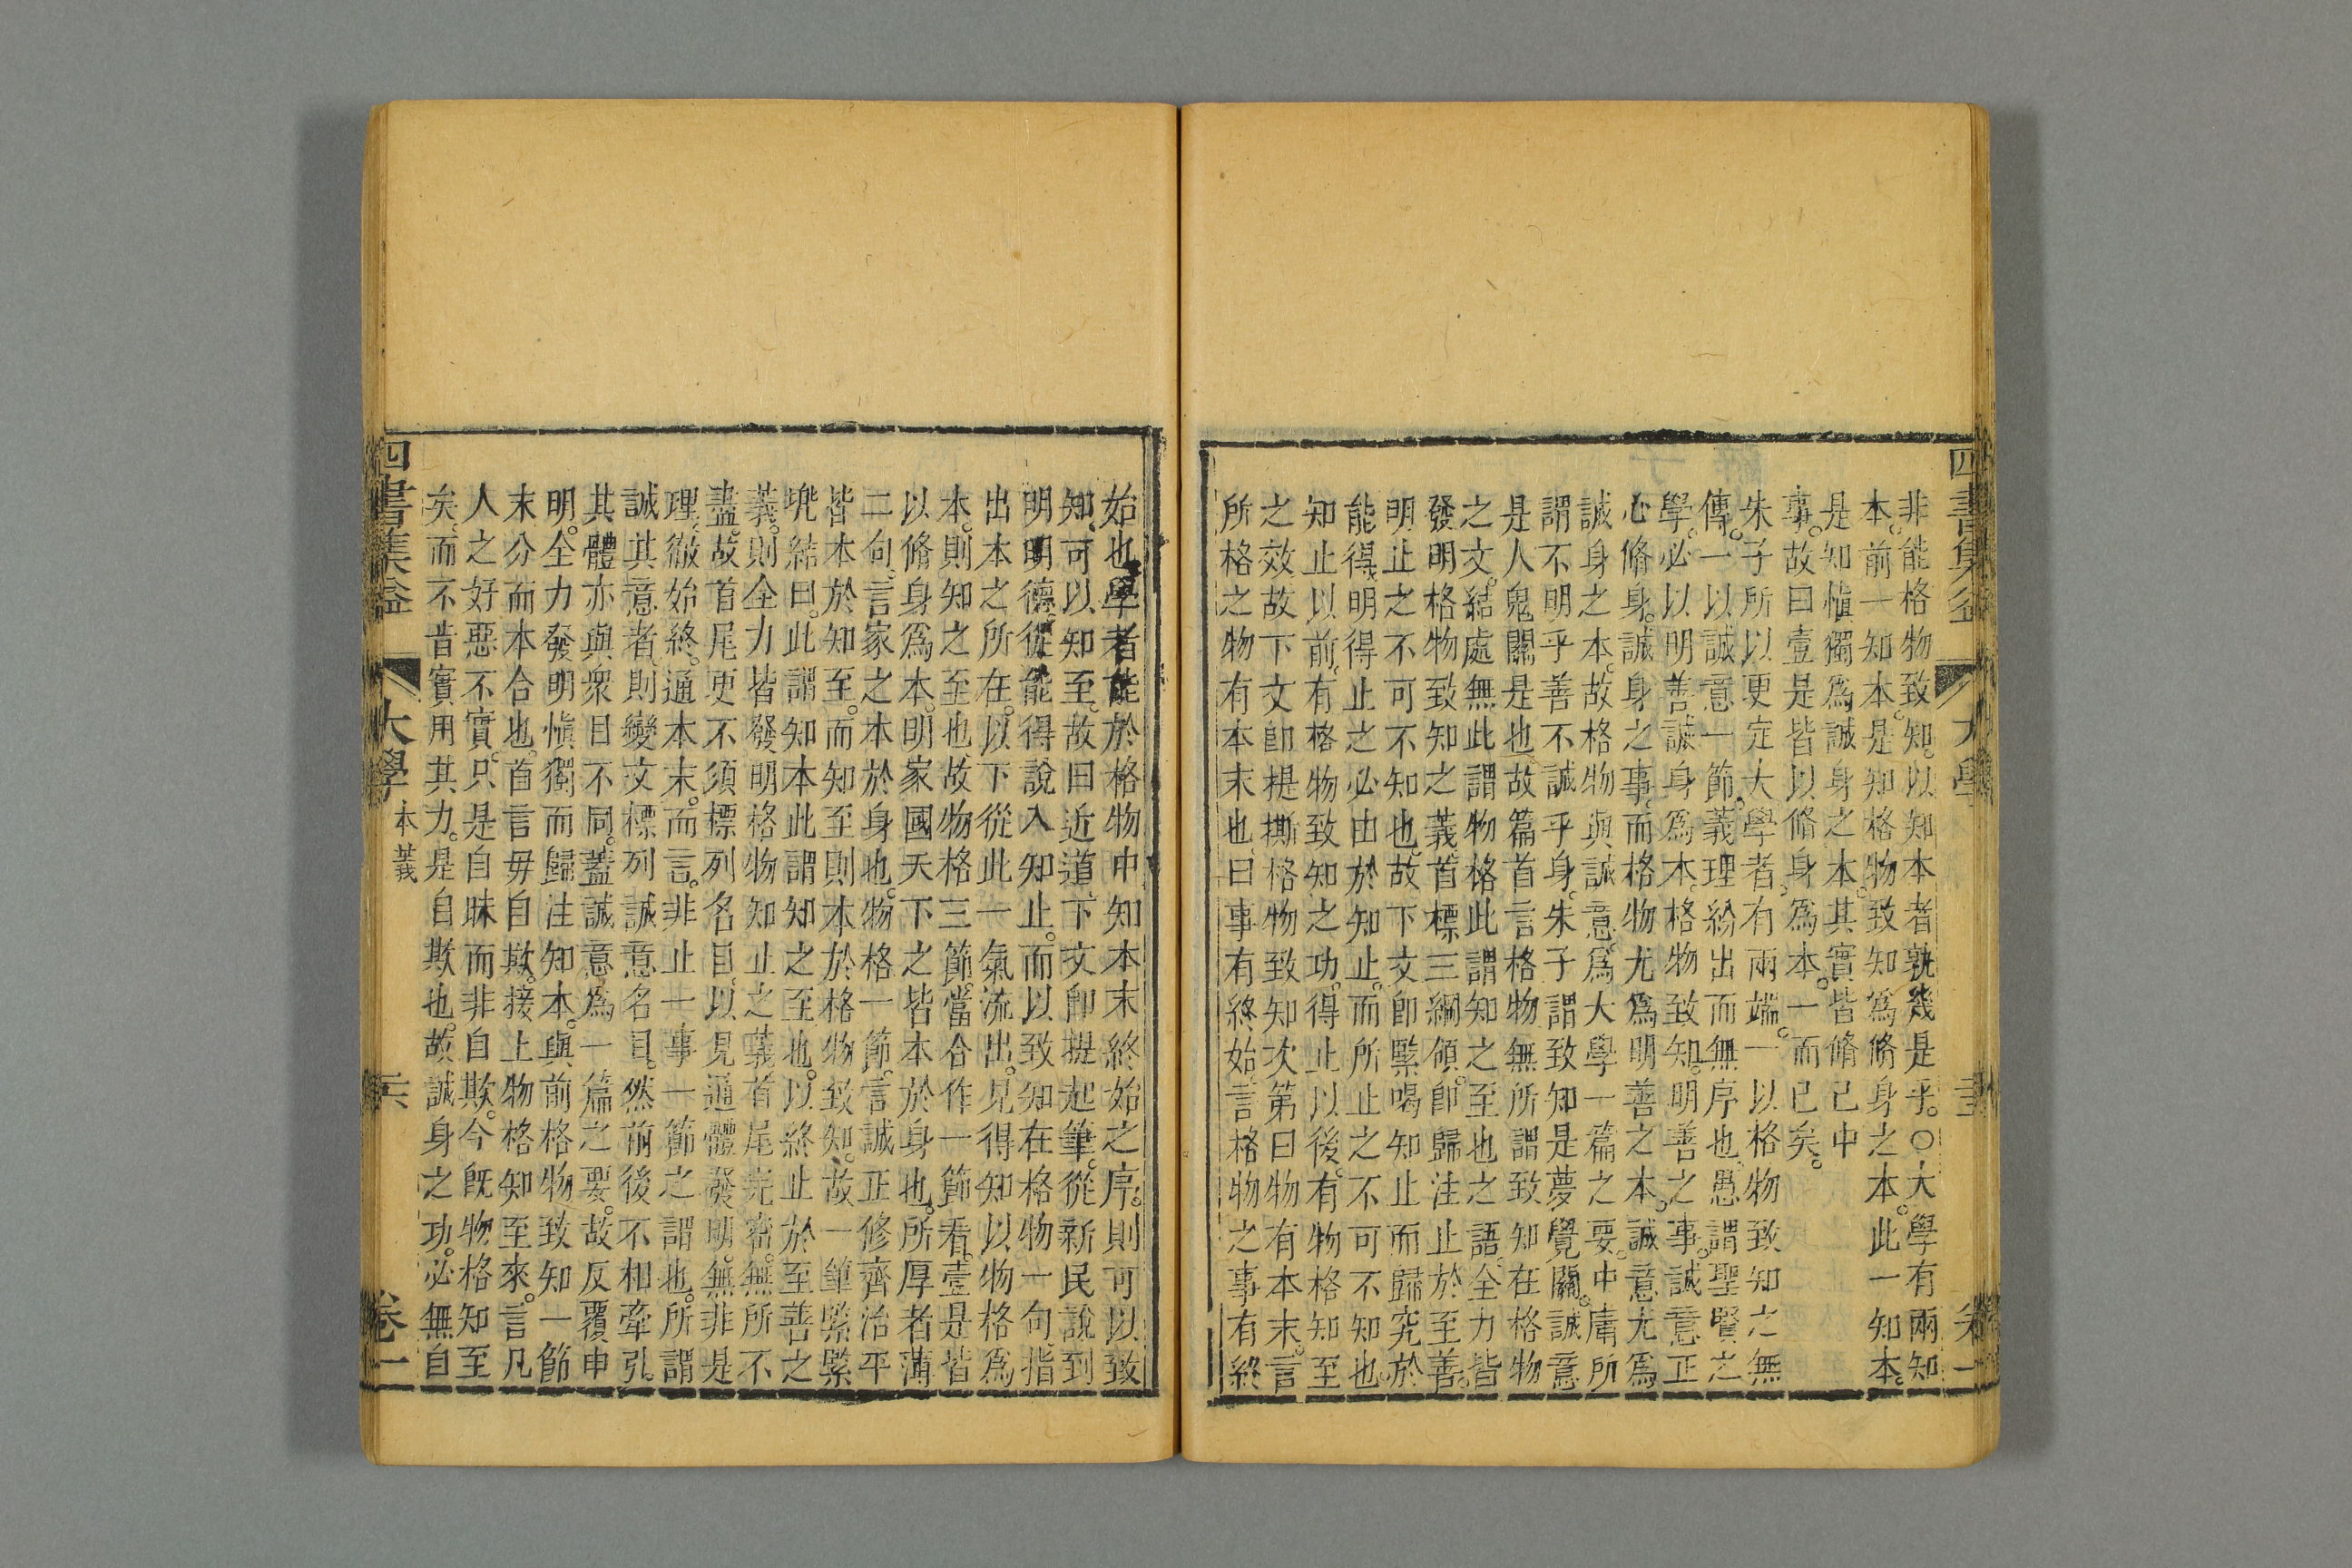 非能格物致知。以知本者孰幾是乎。○大學有兩知
本。前一知本。是知格物致知爲脩身之本。此一知本。
是知愼獨爲誠身之本。其實皆脩己中
事。故曰壹是皆以脩身爲本。一而已矣。
朱子所以更定大學者。有兩端。一以格物致知之無
傳。一以誠意一節。義理紛出而無序也。愚謂聖賢之
學。必以明善誠身爲本。格物致知。明善之事。誠意正
心脩身。誠身之事。而格物尤爲明善之本。誠意尤爲
誠身之本。故格物與誠意。爲大學一篇之要。中庸所
謂不明乎善不誠乎身。朱子謂致知是夢覺關。誠意
是人鬼關是也。故篇首言格物無所謂致知在格物
之文。結處無此謂物格此謂知之至也之語。全力皆
發明格物致知之義。首標三綱領。卽歸注止於至善。
明止之不可不知也。故下文卽緊喝知止而歸究於
能得。明得止之必由於知止。而所止之不可不知也。
知止以前。有格物致知之功。得止以後。有物格知至
之效。故下文卽提撕格物致知次第曰物有本末。言
所格之物有本末也。曰事有終始。言格物之事有終
四書集益 大學 卷一
始也。學者能於格物中知本末終始之序。則可以致
知。可以知至。故曰近道。下文卽提起筆。從新民說到
明明德。從能得說入知止。而以致知在格物一句。指
出本之所在。以下從此一氣流出。見得知以物格爲
本。則知之至也。故物格三節。當合作一節看。壹是皆
以脩身爲本。明家國天下之皆本於身也。所厚者薄
二句。言家之本於身也。物格一節。言誠正修齊治平
皆本於知至。而知至則本於格物致知。故一筆緊緊
兠結曰。此謂知本此謂知之至也。以終止於至善之
義。則全力皆發明格物知止之義。首尾完密。無所不
盡。故首尾更不須標列名目。以見通體發明。無非是
理。徹始終。通本末。而言。非止一事一節之謂也。所謂
誠其意者。則變文標列誠意名目。然前後不相牽引。
其體亦與衆目不同。蓋誠意爲一篇之要。故反覆申
明。全力發明愼獨而歸注知本。與前格物致知一節
末分而本合也。首言毋自欺。接上物格知至來。言凡
人之好惡不實。只是自昧而非自欺。今旣物格知至
矣。而不肯實用其力。是自欺也。故誠身之功。必無自
四書集益 大學 本義 卷一